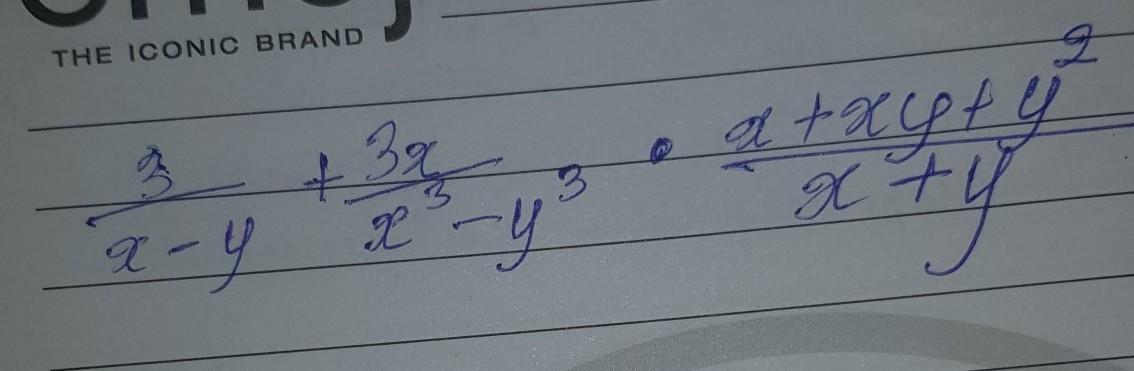 THE ICONIC BRAND
3/(x-y) + 3x/(x³-y³) • (x+xy+y²)/(x+y)